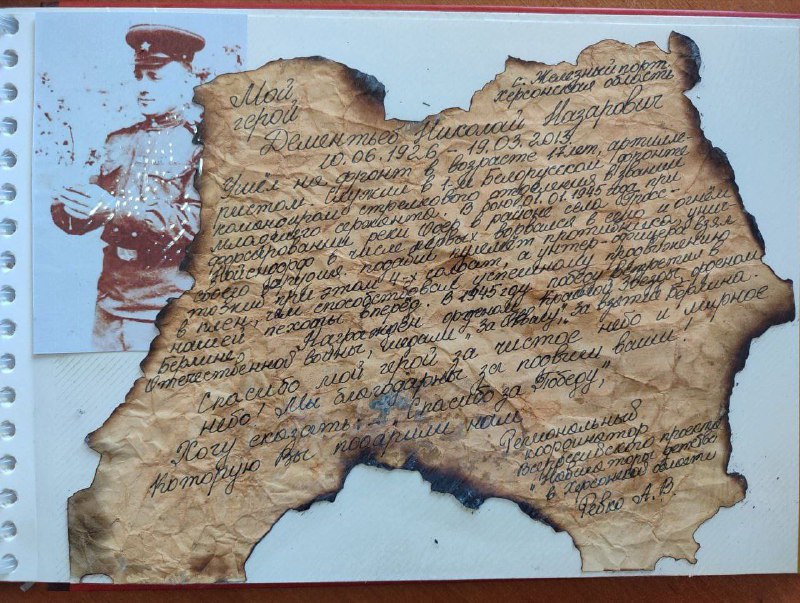 с. Железный порт
Херсонская область
Мой
герой
Дементьев Николай Назарович
10.06.1926 – 19.03.2013
Ушёл на фронт в возрасте 17 лет, артилле-
ристом. Служил в 1-м Белорусском фронте
командиром стрелкового отделения в звании
младшего сержанта. В ночь 01.01.1945 года при
форсировании реки Одер в районе села Гросс-
Нойендорф в числе первых ворвался в село и огнём
своего оружия подавил пулемёт противника, унич-
тожил при этом 4-х солдат, а унтер-офицера взял
в плен, чем способствовал успешному продвижению
нашей пехоты вперёд. В 1945 году победу встретил в
Берлине. Награждён орденом Красной Звезды, орденом
Отечественной войны, медалями "За отвагу", За взятие Берлина.
Спасибо мой герой за чистое небо и мирное
небо! Мы благодарны за подвиги ваши.
Хочу сказать: "Спасибо за Победу,
Которую Вы подарили нам"
Региональный
координатор
Всероссийского проекта
"Навигаторы детства"
в Херсонской области
Ревко А.В.